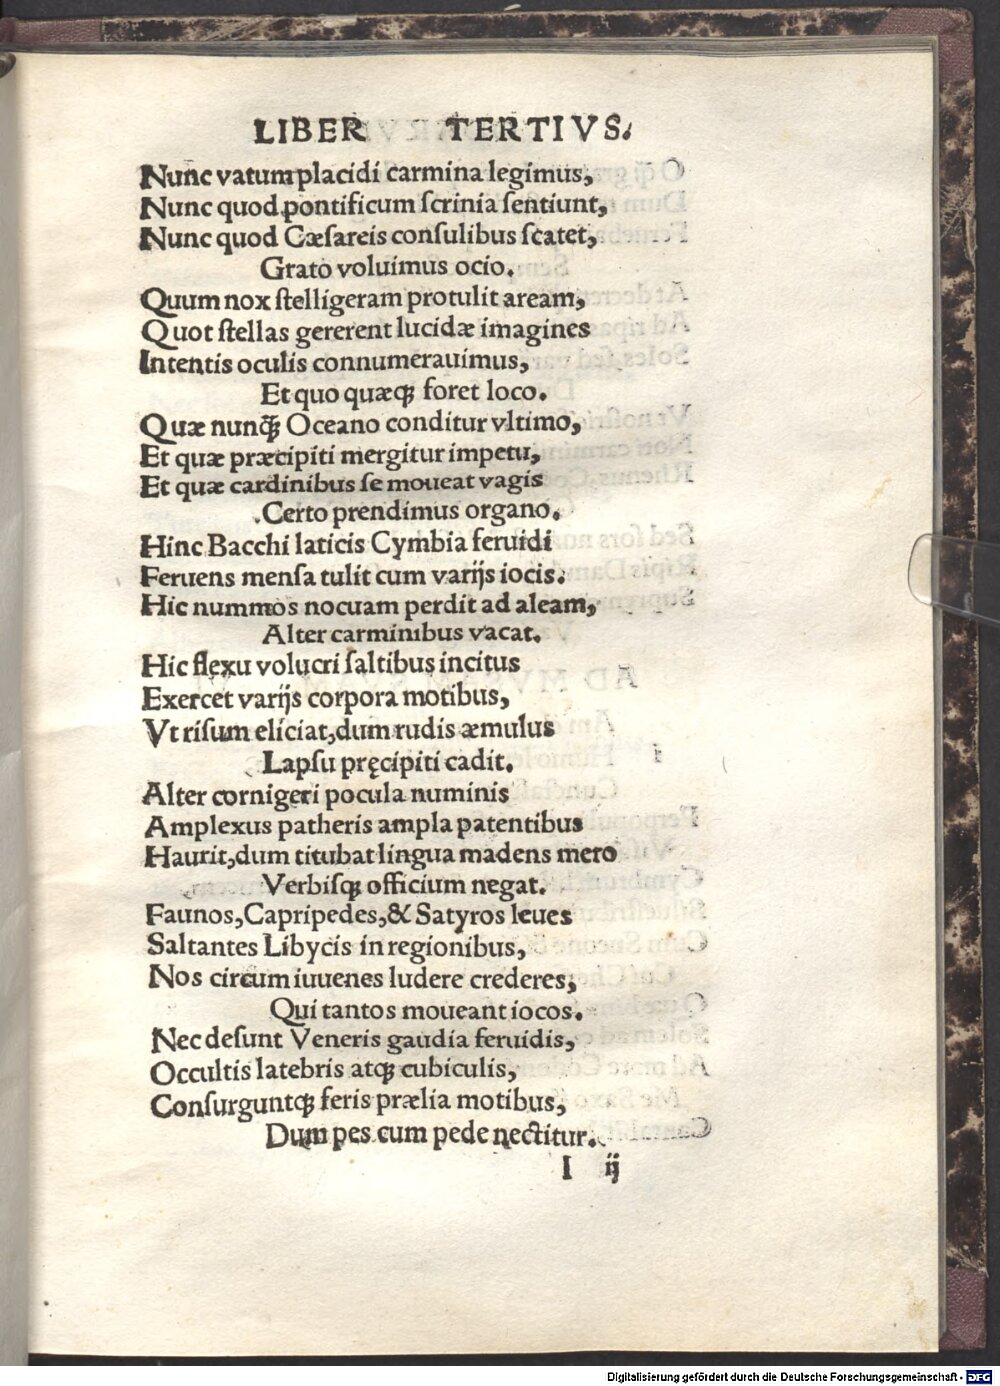 LIBER TERTIVS.
Nunc vatum placidi carmina legimus,
Nunc quod pontificum ſcrinia ſentiunt,
Nunc quod Cæſareis conſulibus ſcatet,
Grato voluimus ocio.
Quum nox ſtelligeram protulit aream,
Quot ſtellas gererent lucidæ imagines
Intentis oculis connumerauimus,
Et quo quæqꝫ foret loco.
Quæ nunqꝫ̃ Oceano conditur vltimo,
Et quæ præcipiti mergitur impetu,
Et quæ cardinibus ſe moueat vagis
Certo prendimus organo.
Hinc Bacchi laticis Cymbia feruidi
Feruens menſa tulit cum varijs iocis.
Hic nummos nocuam perdit ad aleam,
Alter carminibus vacat.
Hic flexu volucri ſaltibus incitus
Exercet varijs corpora motibus,
Vt riſum eliciat, dum rudis æmulus
Lapſu pręcipiti cadit.
Alter cornigeri pocula numinis
Amplexus patheris ampla patentibus
Haurit, dum titubat lingua madens mero
Verbiſqꝫ officium negat.
Faunos, Capripedes, & Satyros leues
Saltantes Libycis in regionibus,
Nos circum iuuenes ludere crederes,
Qui tantos moueant iocos.
Nec deſunt Veneris gaudia feruidis,
Occultis latebris atqꝫ cubiculis,
Conſurguntqꝫ feris prælia motibus,
Dum pes cum pede nectitur.
I ij
Digitalisierung gefördert durch die Deutsche Forschungsgemeinschaft - DFG